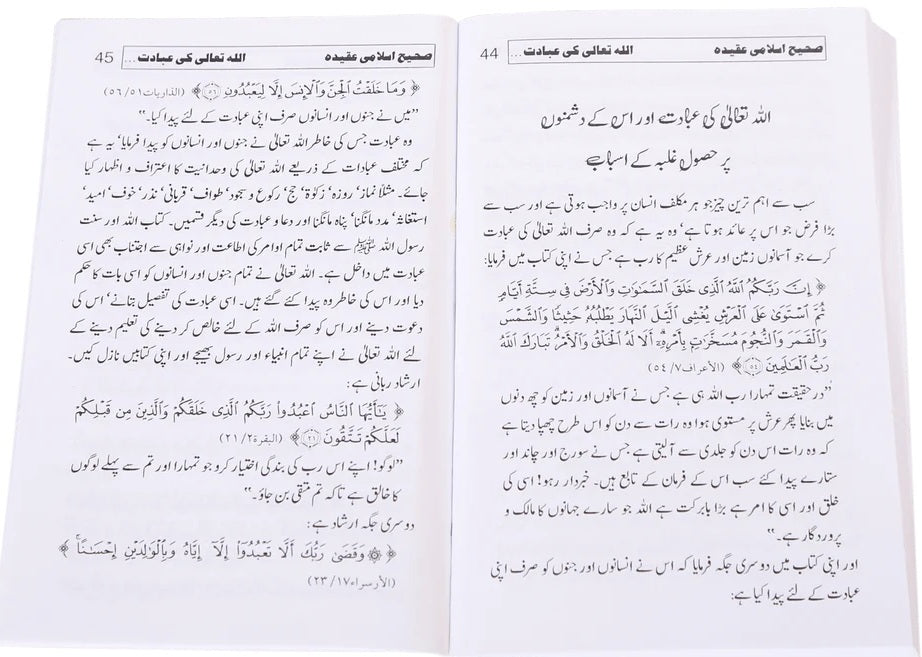 صحیح اسلامی عقیدہ اللہ تعالی کی عبادت ... 44
اللہ تعالیٰ کی عبادت اور اس کے دشمنوں
پر حصولِ غلبہ کے اسباب
سب سے اہم ترین چیز جو ہر مکلف انسان پر واجب ہوتی ہے اور سب سے
بڑا فرض جو اس پر عائد ہوتا ہے‘ وہ یہ ہے کہ وہ صرف اللہ تعالیٰ کی عبادت
کرے جو آسمانوں زمین اور عرش عظیم کا رب ہے جس نے اپنی کتاب میں فرمایا:
﴿ إِنَّ رَبَّكُمُ اللَّهُ الَّذِي خَلَقَ السَّمَاوَاتِ وَالْأَرْضَ فِي سِتَّةِ أَيَّامٍ
ثُمَّ اسْتَوَىٰ عَلَى الْعَرْشِ يُغْشِي اللَّيْلَ النَّهَارَ يَطْلُبُهُ حَثِيثًا وَالشَّمْسَ
وَالْقَمَرَ وَالنُّجُومَ مُسَخَّرَاتٍ بِأَمْرِهِ ۗ أَلَا لَهُ الْخَلْقُ وَالْأَمْرُ ۗ تَبَارَكَ اللَّهُ
رَبُّ الْعَالَمِينَ (٥٤) ﴾ (الأعراف٧/ ٥٤)
”در حقیقت تمہارا رب اللہ ہی ہے جس نے آسمانوں اور زمین کو چھ دنوں
میں بنایا پھر عرش پر مستوی ہوا وہ رات سے دن کو اس طرح چھپا دیتا ہے
کہ وہ رات اس دن کو جلدی سے آ لیتی ہے جس نے سورج اور چاند اور
ستارے پیدا کئے سب اس کے فرمان کے تابع ہیں۔ خبردار رہو! اسی کی
خلق اور اسی کا امر ہے بڑا بابرکت ہے اللہ جو سارے جہانوں کا مالک و
پروردگار ہے۔“
اور اپنی کتاب میں دوسری جگہ فرمایا کہ اس نے انسانوں اور جنوں کو صرف اپنی
عبادت کے لئے پیدا کیا ہے:
صحیح اسلامی عقیدہ اللہ تعالی کی عبادت ... 45
﴿ وَمَا خَلَقْتُ الْجِنَّ وَالْإِنسَ إِلَّا لِيَعْبُدُونِ (٥٦) ﴾ (الذاريات٥١/ ٥٦)
”میں نے جنوں اور انسانوں صرف اپنی عبادت کے لئے پیدا کیا۔“
وہ عبادت جس کی خاطر اللہ تعالیٰ نے جنوں اور انسانوں کو پیدا فرمایا‘ یہ ہے
کہ مختلف عبادات کے ذریعے اللہ تعالیٰ کی وحدانیت کا اعتراف و اظہار کیا
جائے۔ مثلاً نماز‘ روزہ‘ زکوٰۃ‘ حج‘ رکوع و سجود‘ طواف‘ قربانی‘ نذر‘ خوف‘ امید‘
استغاثہ‘ مدد مانگنا‘ پناہ مانگنا اور دعا و عبادت کی دیگر قسمیں۔ کتاب اللہ اور سنت
رسول اللہ ﷺ سے ثابت تمام اوامر کی اطاعت اور نواہی سے اجتناب بھی اسی
عبادت میں داخل ہے۔ اللہ تعالیٰ نے تمام جنوں اور انسانوں کو اسی بات کا حکم
دیا اور اس کی خاطر وہ پیدا کئے گئے ہیں۔ اسی عبادت کی تفصیل بتانے‘ اس کی
دعوت دینے اور اس کو صرف اللہ کے لئے خالص کر دینے کی تعلیم دینے کے
لئے اللہ تعالیٰ نے اپنے تمام انبیاء اور رسول بھیجے اور اپنی کتابیں نازل کیں۔
ارشاد ربانی ہے:
﴿ يَا أَيُّهَا النَّاسُ اعْبُدُوا رَبَّكُمُ الَّذِي خَلَقَكُمْ وَالَّذِينَ مِن قَبْلِكُمْ
لَعَلَّكُمْ تَتَّقُونَ (٢١) ﴾ (البقرة٢/ ٢١)
”لوگو! اپنے اس رب کی بندگی اختیار کرو جو تمہارا اور تم سے پہلے لوگوں
کا خالق ہے تاکہ تم متقی بن جاؤ۔“
دوسری جگہ ارشاد ہے:
﴿ ۞ وَقَضَىٰ رَبُّكَ أَلَّا تَعْبُدُوا إِلَّا إِيَّاهُ وَبِالْوَالِدَيْنِ إِحْسَانًا ۚ ﴾
(الأرسراء١٧/ ٢٣)